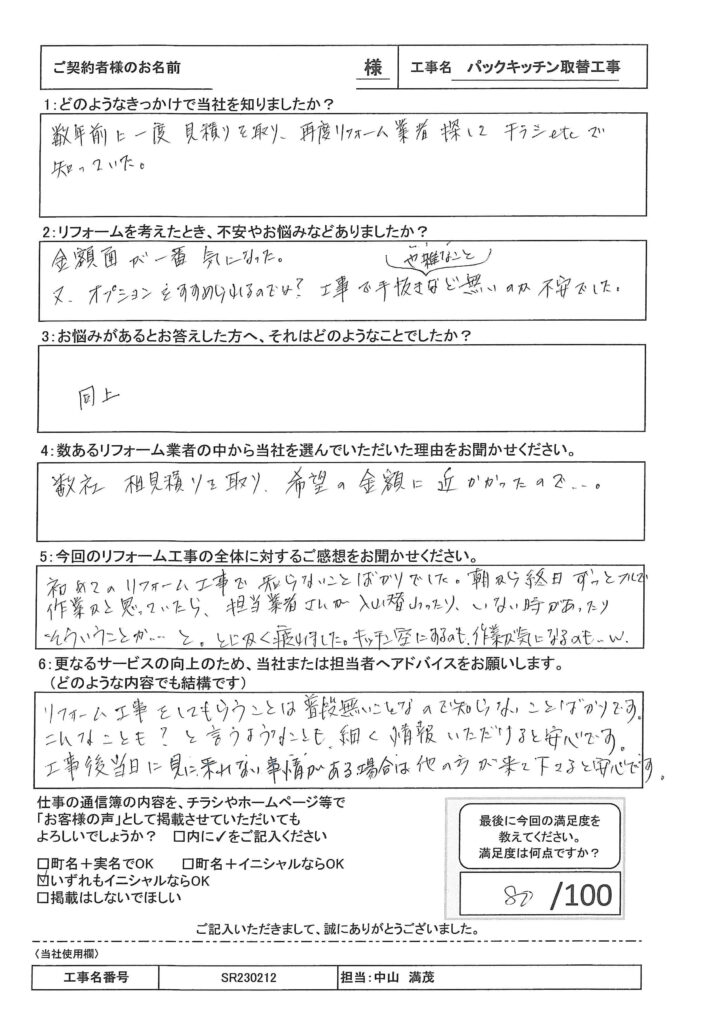 ご契約者様のお名前 様 工事名 パックキッチン取替工事
1:どのようなきっかけで当社を知りましたか?
数年前に一度 見積りを取り、再度リフォーム業者 探して チラシetcで
知っていた。
2:リフォームを考えたとき、不安やお悩みなどありましたか?
金額面が一番 気になった。
や雑なこと
又、オプションをすすめられるのでは? 工事で手抜きなど無いのか 不安でした。
3:お悩みがあるとお答えした方へ、それはどのようなことでしたか?
同上
4:数あるリフォーム業者の中から当社を選んでいただいた理由をお聞かせください。
数社 相見積りを取り、希望の金額に 近かかったので…。
5:今回のリフォーム工事の全体に対するご感想をお聞かせください。
初めてのリフォーム工事で 知らないことばかりでした。朝から終日 ずっとフルで
作業かと思っていたら、担当業者さんが入れ替わったり、いない時があったり
そういうことか… と。とにかく疲れました。キッチン空にするのも、作業が気になるのも…w.
6:更なるサービスの向上のため、当社または担当者へアドバイスをお願いします。
(どのような内容でも結構です)
リフォーム工事をしてもらうことは普段無いことなので知らないことばかりです。
こんなことも? と言うようなことも、細く 情報いただけると安心です。
工事後当日に見に来れない事情がある場合は他の方が来て下さると安心です。
仕事の通信簿の内容を、チラシやホームページ等で
「お客様の声」として掲載させていただいても
よろしいでしょうか? □内に✓をご記入ください
□町名+実名でOK □町名+イニシャルならOK
☑いずれもイニシャルならOK
□掲載はしないでほしい
最後に今回の満足度を
教えてください。
満足度は何点ですか?
80 /100
ご記入いただきまして、誠にありがとうございました。
〈当社使用欄〉
工事名番号 SR230212 担当:中山 満茂